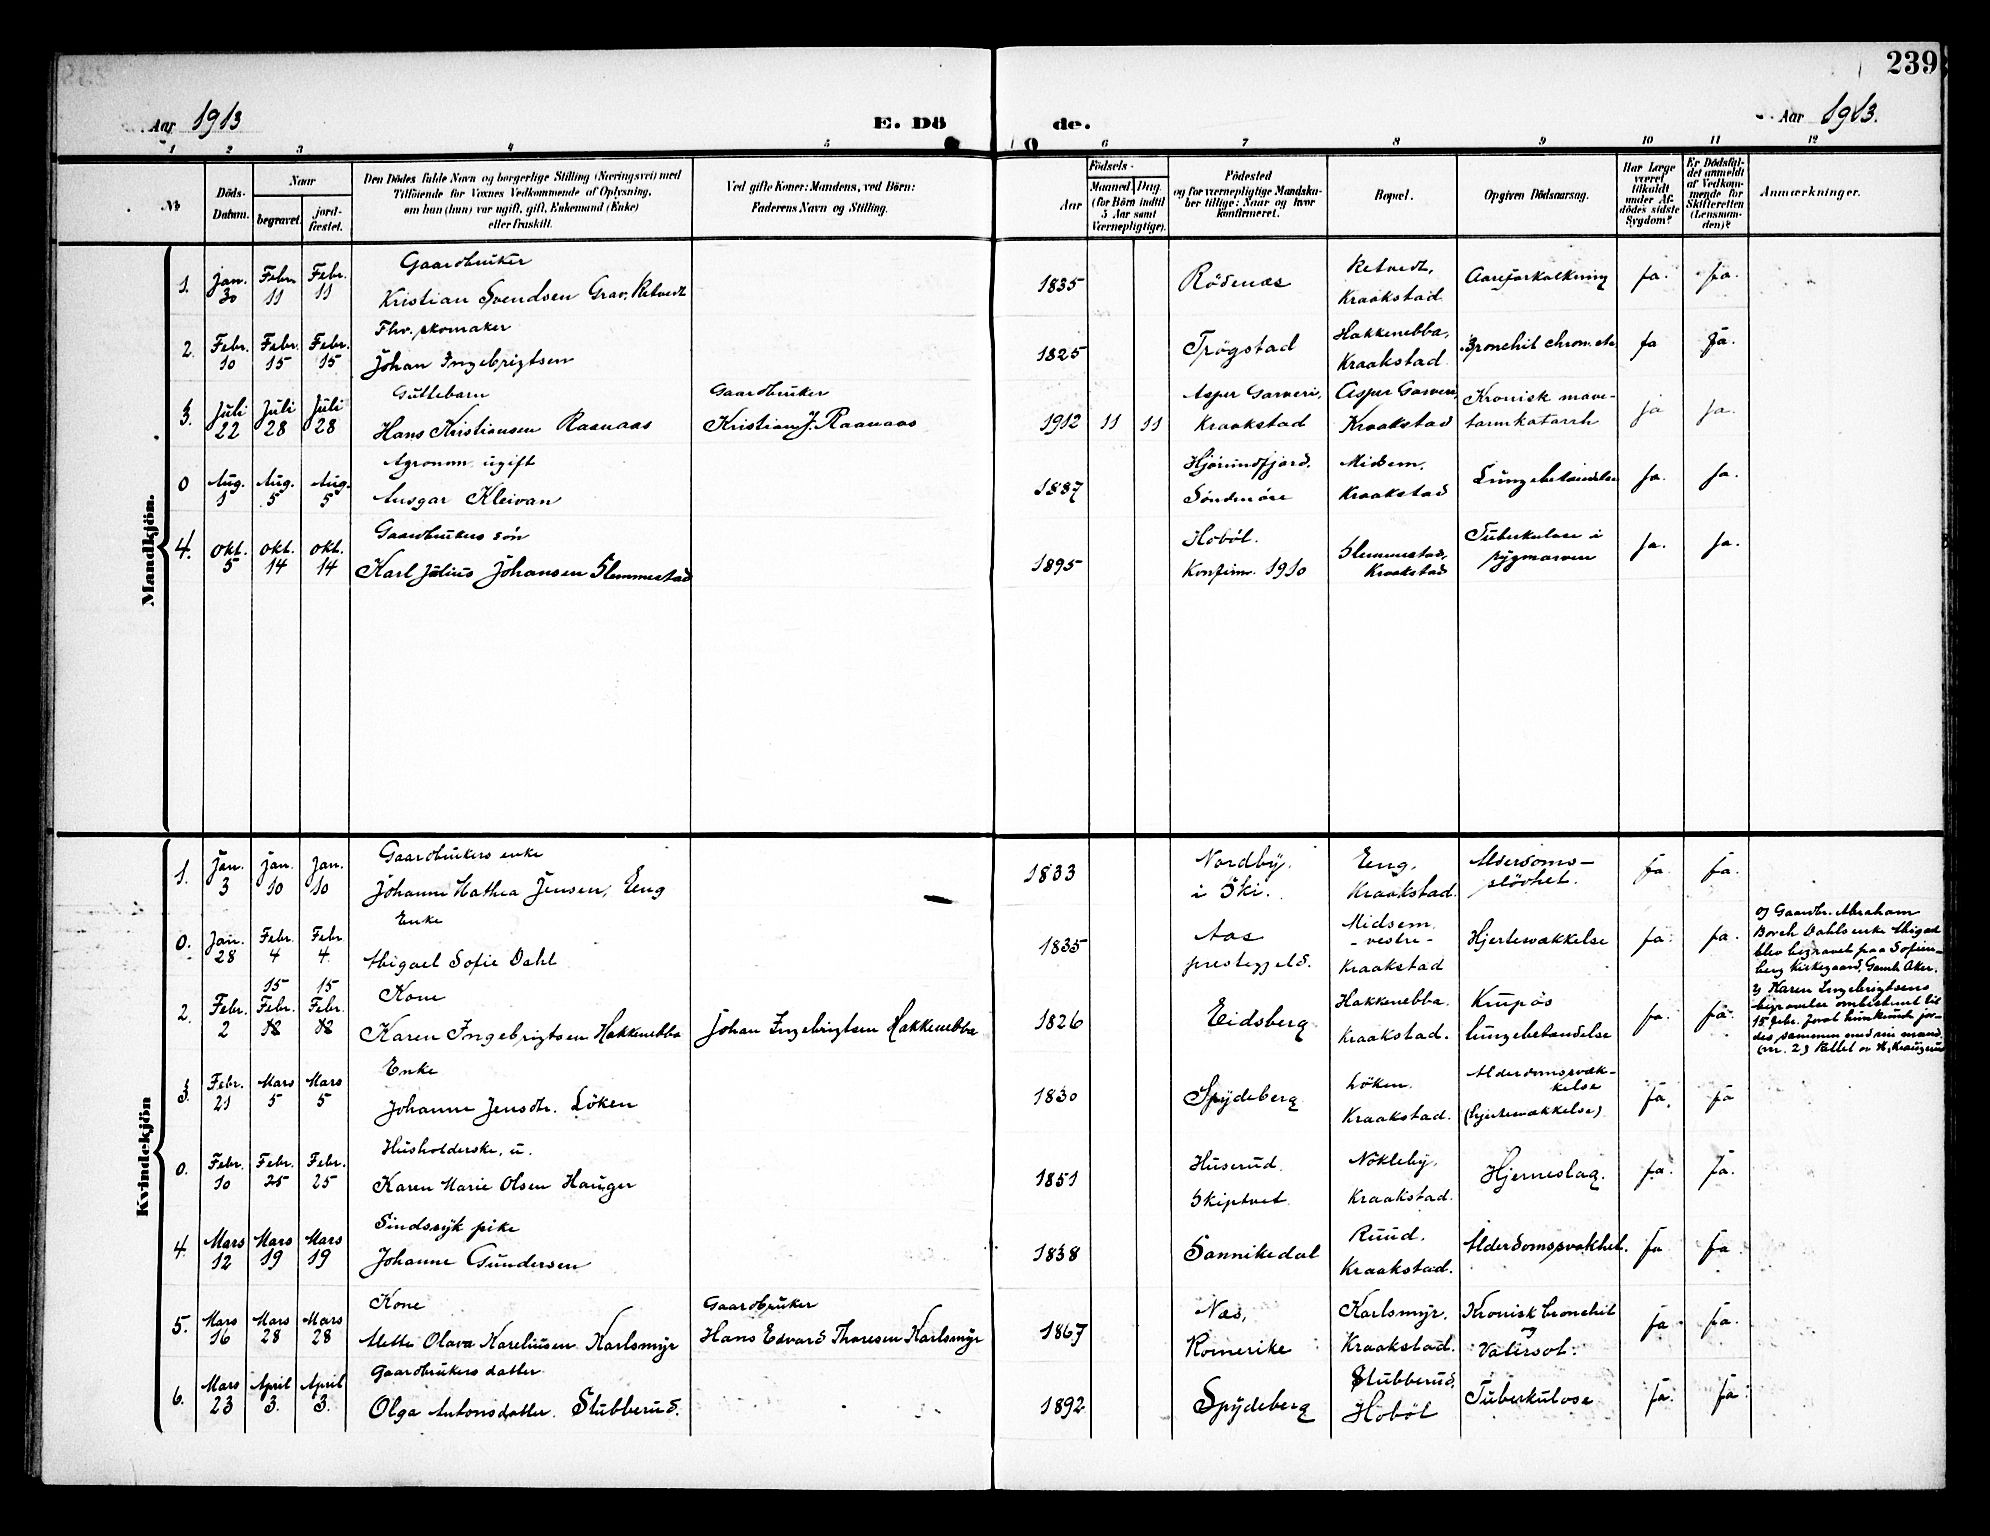 239
Aar 1913
E. Dö
de.
Aar 1913.
1 2 3 4 5 6 7 8 9 10 11 12
№
Döds-
Datum.
Naar
begravet.
jord-
fæstet.
Den Dödes fulde Navn og borgerlige Stilling (Næringsvei) med
Tilföiende for Voxnes Vedkommende af Oplysning,
om han (hun) var ugift, gift, Enkemand (Enke)
eller fraskilt.
Ved gifte Koner: Mandens, ved Börn:
Faderens Navn og Stilling.
Födsels-
Aar
Maaned
Dag
(for Börn indtil
5 Aar samt
Værnepligtige).
Födested
og for værnepligtige Mandska-
ber tillige: Naar og hvor
konfirmeret.
Bopæl.
Opgiven Dödsaarsag.
Har Læge
været
tilkaldt
under Af-
dödes sidste
Sygdom?
Er Dödsfal-
det anmeldt
af Vedkom-
mende for
Skifteretten
(Lensman-
den)?
Anmærkninger.
Mandkjön.
1. Jan. 30 Febr. 11 Febr. 11 Gaardbruker
Kristian Svendsen Grav, Retvedt 1835 Rödenæs Retvedt, Kraakstad Aareforkalkning ja. ja.
2. Febr. 10 Febr. 15 Febr. 15 Fhv. skomaker
Johan Ingebrigtsen 1825 Trögstad Hakkenebba, Kraakstad Bronchit chron. etc ja ja.
3. Juli 22 Juli 28 Juli 28 Guttebarn
Hans Kristiansen Raanaas Gaardbruker
Kristian J. Raanaas 1912 11 11 Asper Garveri, Kraakstad Asper Garveri, Kraakstad Kronisk mave-
tarmkatarrh ja ja.
0 Aug. 1 Aug. 5 Aug. 5 Agronom, ugift
Ansgar Kleivan 1887 Hjörundfjord, Söndmöre Midsem, Kraakstad Lungebetændelse ja. ja.
4. Okt. 5 Okt. 14 Okt. 14 Gaardbrukers sön
Karl Julius Johansen Slemmestad 1895 Hoböl. Konfirm. 1910 Slemmestad, Kraakstad Tuberkulose i
rygmarven ja. ja.
Kvindekjön
1. Jan. 3 Jan. 10 Jan. 10 Gaardbrukers enke
Johanne Mathea Jensen, Eeng 1833 Nordby. i Ski. Eeng, Kraakstad. Alderdoms-
slövhet. ja. ja.
0. Jan. 28 Febr. 4 Febr. 4 Enke
Abigael Sofie Dahl 1835 Aas prestegjeld. Midsem - vestre - Kraakstad Hjertesvækkelse ja. ja.
2. Febr. 2 15 Febr. 12 15 Febr. 12 Kone
Karen Ingebrigtsen Hakkenebba Johan Ingebrigtsen Hakkenebba 1826 Eidsberg Hakkenebba. Kraakstad. Krupös
lungebetændelse ja. ja.
3. Febr. 21 Mars 5 Mars 5 Enke
Johanne Jensdtr. Löken 1830 Spydeberg Löken. Kraakstad. Alderdomssvæk-
kelse
(hjertesvækkelse) ja. ja
0. Febr. 10 Febr. 25 Febr. 25 Husholderske, u.
Karen Marie Olsen Hauger 1851 Huserud. Skiptvet. Nökleby, Kraakstad. Hjerneslag. ja. ja.
4. Mars 12 Mars 19 Mars 19 Sindssyk pike
Johanne Gundersen 1838 Sannikedal Ruud. Kraakstad. Alderdomssvakhet. ja ja.
5. Mars 16 Mars 28 Mars 28 Kone
Mette Olava Kareliusen Karlsmyr Gaardbruker
Hans Edvard Thoresen Karlsmyr 1867 Næs, Romerike Karlsmyr. Kraakstad. Kronisk bronchit
og
Vatersot. ja. ja.
6. Mars 23 April 3. April 3. Gaardbrukers datter
Olga Antonsdatter Stubberud. 1892 Spydeberg Stubberud, Hoböl Tuberkulose ja. ja.
0) Gaardbr. Abraham
Borch Dahls enke Abigael
blev begravet paa Sofien-
berg kirkegaard, Gamle Aker.
2) Karen Ingebrigtsens
begravelse ombestemt til
15 febr. forat hun kunde jor-
des sammen med sin mand
(nr. 2)